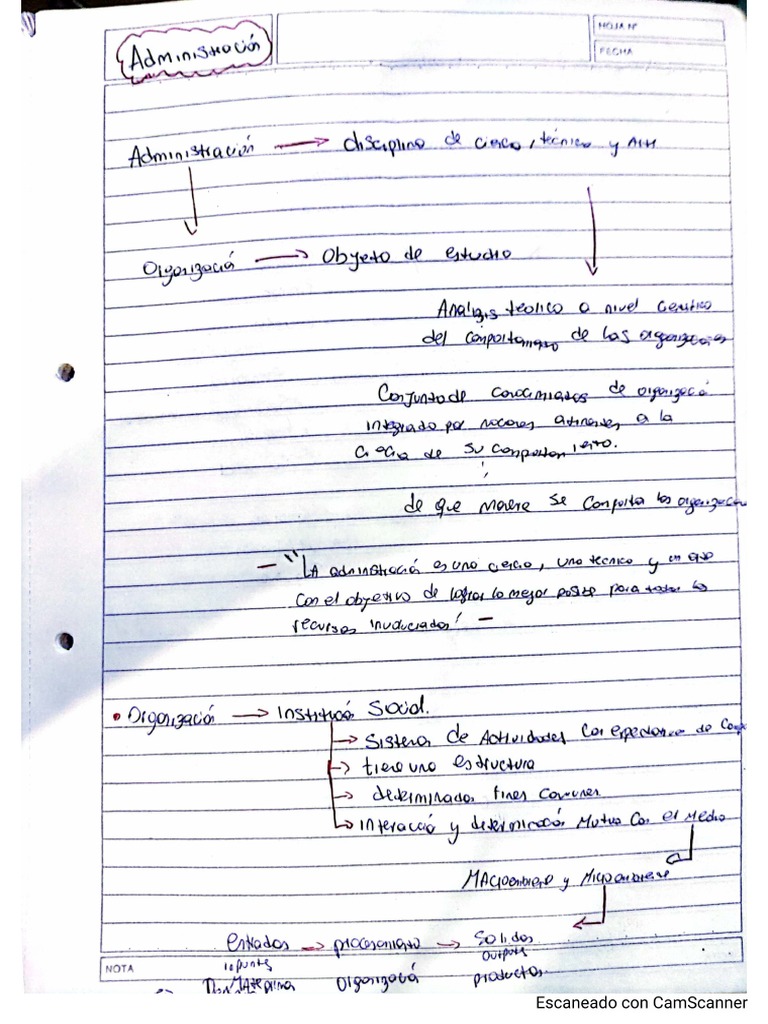 Administración
HOJA N°
FECHA
Administración → disciplina de ciencia, técnica y Arte
Organización → Objeto de estudio
Análisis teórico a nivel científico
del comportamiento de las organizaciones
Conjunto de conocimientos de organización
integrado por nociones atinentes a la
ciencia de su comportamiento.
de que manera se comporta las organizacion
— "LA administración es una ciencia, una técnica y un arte
con el objetivo de lograr lo mejor posible para todos los
recursos involucrados" —
• Organización → Institución Social.
→ Sistema de Actividades con expectativa de
→ tiene una estructura
→ determinados fines comunes
→ Interacción y determinación Mutua con el Medio
MAcroambiente y Microambiente
entradas → procesamiento → Salidas
inputs outputs
MAteprima Organización productos
NOTA
Escaneado con CamScanner